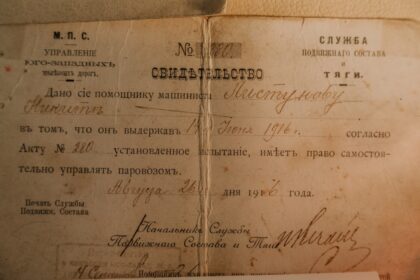 М. П. С.
УПРАВЛЕНІЕ
ЮГО-ЗАПАДНЫХ
желѣзныхъ дорогъ.
СЛУЖБА
ПОДВИЖНАГО СОСТАВА
и
ТЯГИ.
№ 220
СВИДѢТЕЛЬСТВО
Дано сіе помощнику машиниста Листунову
Никитѣ
въ томъ, что онъ выдержавъ Іюня 1916 г. согласно
Акту № 220 установленное испытаніе, имѣетъ право самостоя-
тельно управлять паровозомъ.
Августа 26 дня 1916 года.
Печать Службы
Подвижн. Состава
Начальникъ Службы
Подвижного Состава и Тяги